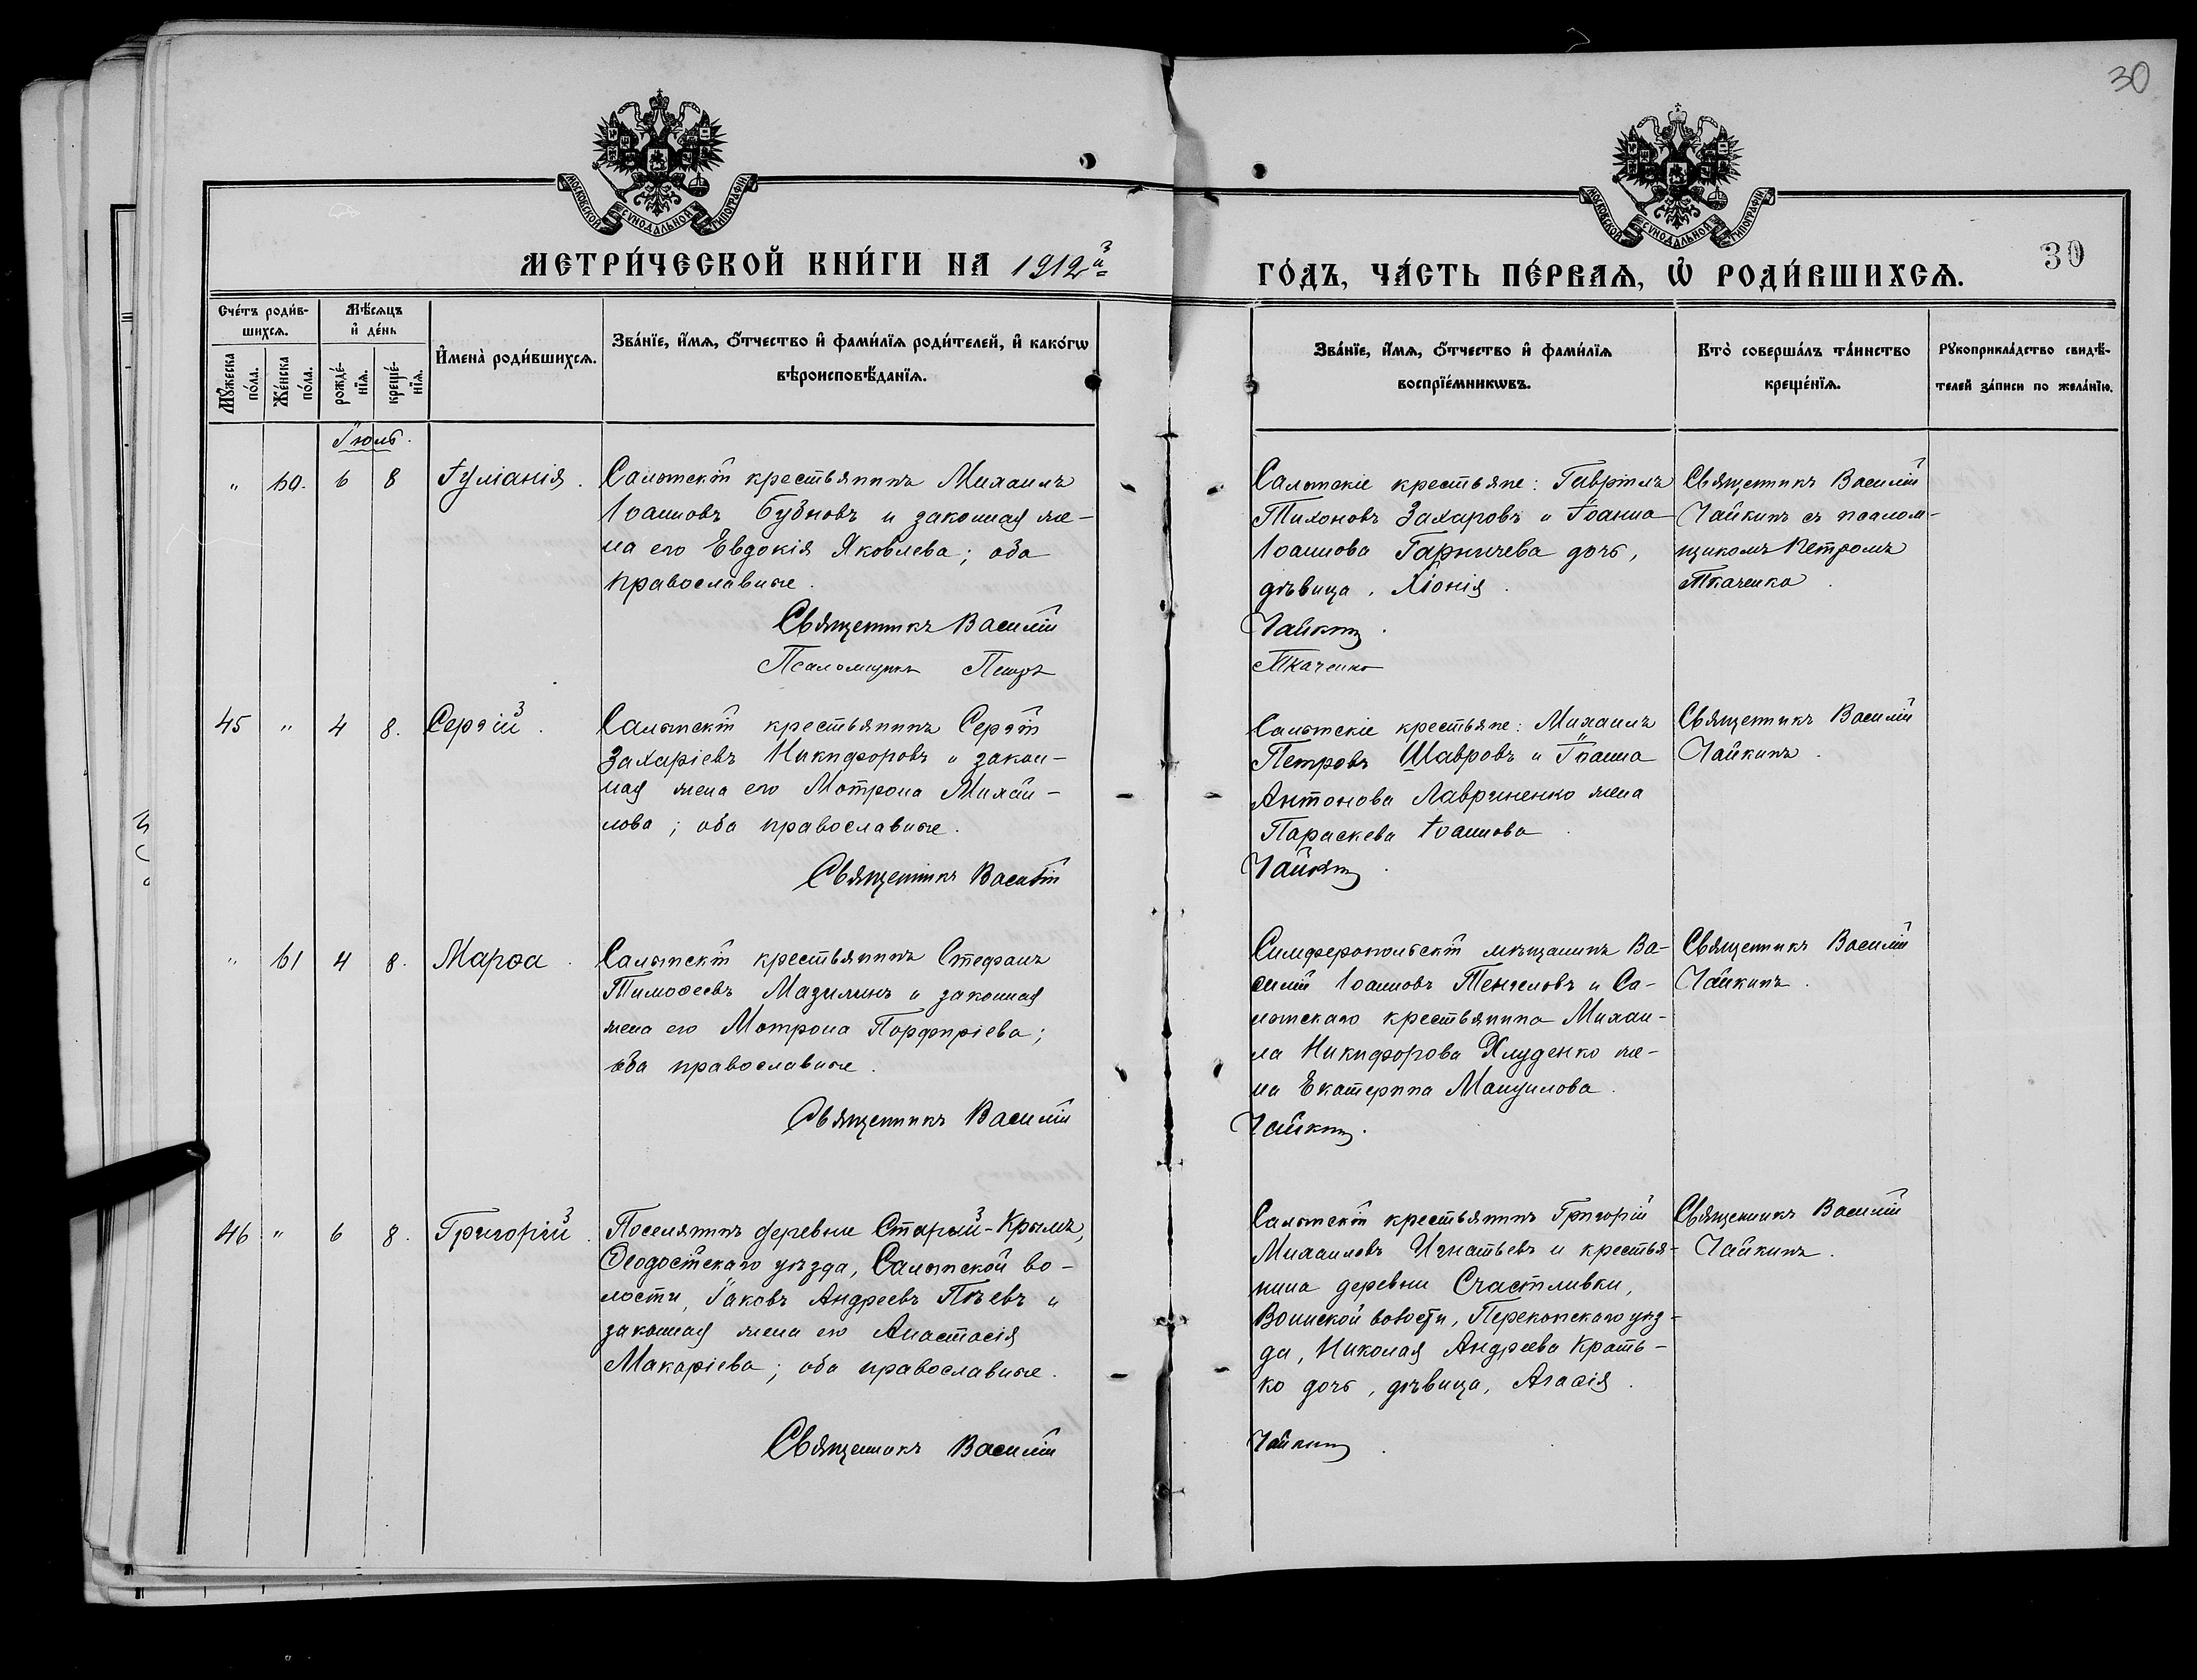 30
МОСКОВСКОЙ СУНОДАЛЬНОЙ ТИПОГРАФИИ
МОСКОВСКОЙ СУНОДАЛЬНОЙ ТИПОГРАФИИ
МЕТРИ́ЧЕСКОЙ КНИ́ГИ НА 1912й
ГО́ДЪ, ЧА́СТЬ ПЕ́РВАѦ, Ѽ РОДИ́ВШИХСѦ.
30
Сче́тъ роди́в-
шихсѧ.
Мѣ́сѧцъ
и҆ де́нь
Мꙋ́жеска
по́ла.
Же́нска
по́ла.
рожде́-
нїѧ.
креще́-
нїѧ.
И҆мена̀ роди́вшихсѧ.
Зва́нїе, и҆́мѧ, ѻ҆́тчество и҆ фами́лїѧ роди́телей, и҆ како́гѡ
вѣроисповѣ́данїѧ.
Зва́нїе, и҆́мѧ, ѻ҆́тчество и҆ фами́лїѧ
воспрїе́мникѡвъ.
Кто̀ соверша́лъ та́инство
креще́нїѧ.
Рꙋкоприкла́дство свидѣ́-
телей за́писи по жела́нїю.
Іюль.
" 60. 6 8 Іуліанія.
Салынскій крестьянинъ Михаилъ
Іоанновъ Бубновъ и законная же-
на его Евдокія Яковлева; оба
православные.
Священникъ Василій
Псаломщикъ Петръ
Салынскіе крестьяне: Гавріилъ
Тихоновъ Захаровъ и Іоанна
Іоаннова Гарничева дочь,
дѣвица, Хіонія.
Чайкинъ.
Ткаченко
Священникъ Василій
Чайкинъ съ псалом-
щикомъ Петромъ
Ткаченко.
45 " 4 8. Сергій.
Салынскій крестьянинъ Сергій
Захаріевъ Никифоровъ и закон-
ная жена его Мотрона Михаи-
лова; оба православные.
Священникъ Василій
Салынскіе крестьяне: Михаилъ
Петровъ Шавровъ и Іоанна
Антонова Лавриненко жена
Параскева Іоаннова.
Чайкинъ.
Священникъ Василій
Чайкинъ.
" 61 4 8. Марѳа.
Салынскій крестьянинъ Стефанъ
Тимоѳеевъ Мазилинъ и законная
жена его Мотрона Порфиріева;
оба православные.
Священникъ Василій
Симферопольскій мѣщанинъ Ва-
силій Іоанновъ Тенгеловъ и Са-
лынскаго крестьянина Михаи-
ла Никифорова Хлуденко же-
на Екатерина Мануилова.
Чайкинъ.
Священникъ Василій
Чайкинъ.
46 " 6 8. Григорій.
Поселянинъ деревни Старый-Крымъ,
Ѳеодосійскаго уѣзда, Салынской во-
лости, Іаковъ Андреевъ Пѣевъ и
законная жена его Анастасія
Макаріева; оба православные.
Священникъ Василій
Салынскій крестьянинъ Григорій
Михаиловъ Игнатьевъ и крестья-
нина деревни Счастливки,
Воинской волости, Перекопскаго уѣз-
да, Николая Андреева Крать-
ко дочь, дѣвица, Агасія.
Чайкинъ.
Священникъ Василій
Чайкинъ.